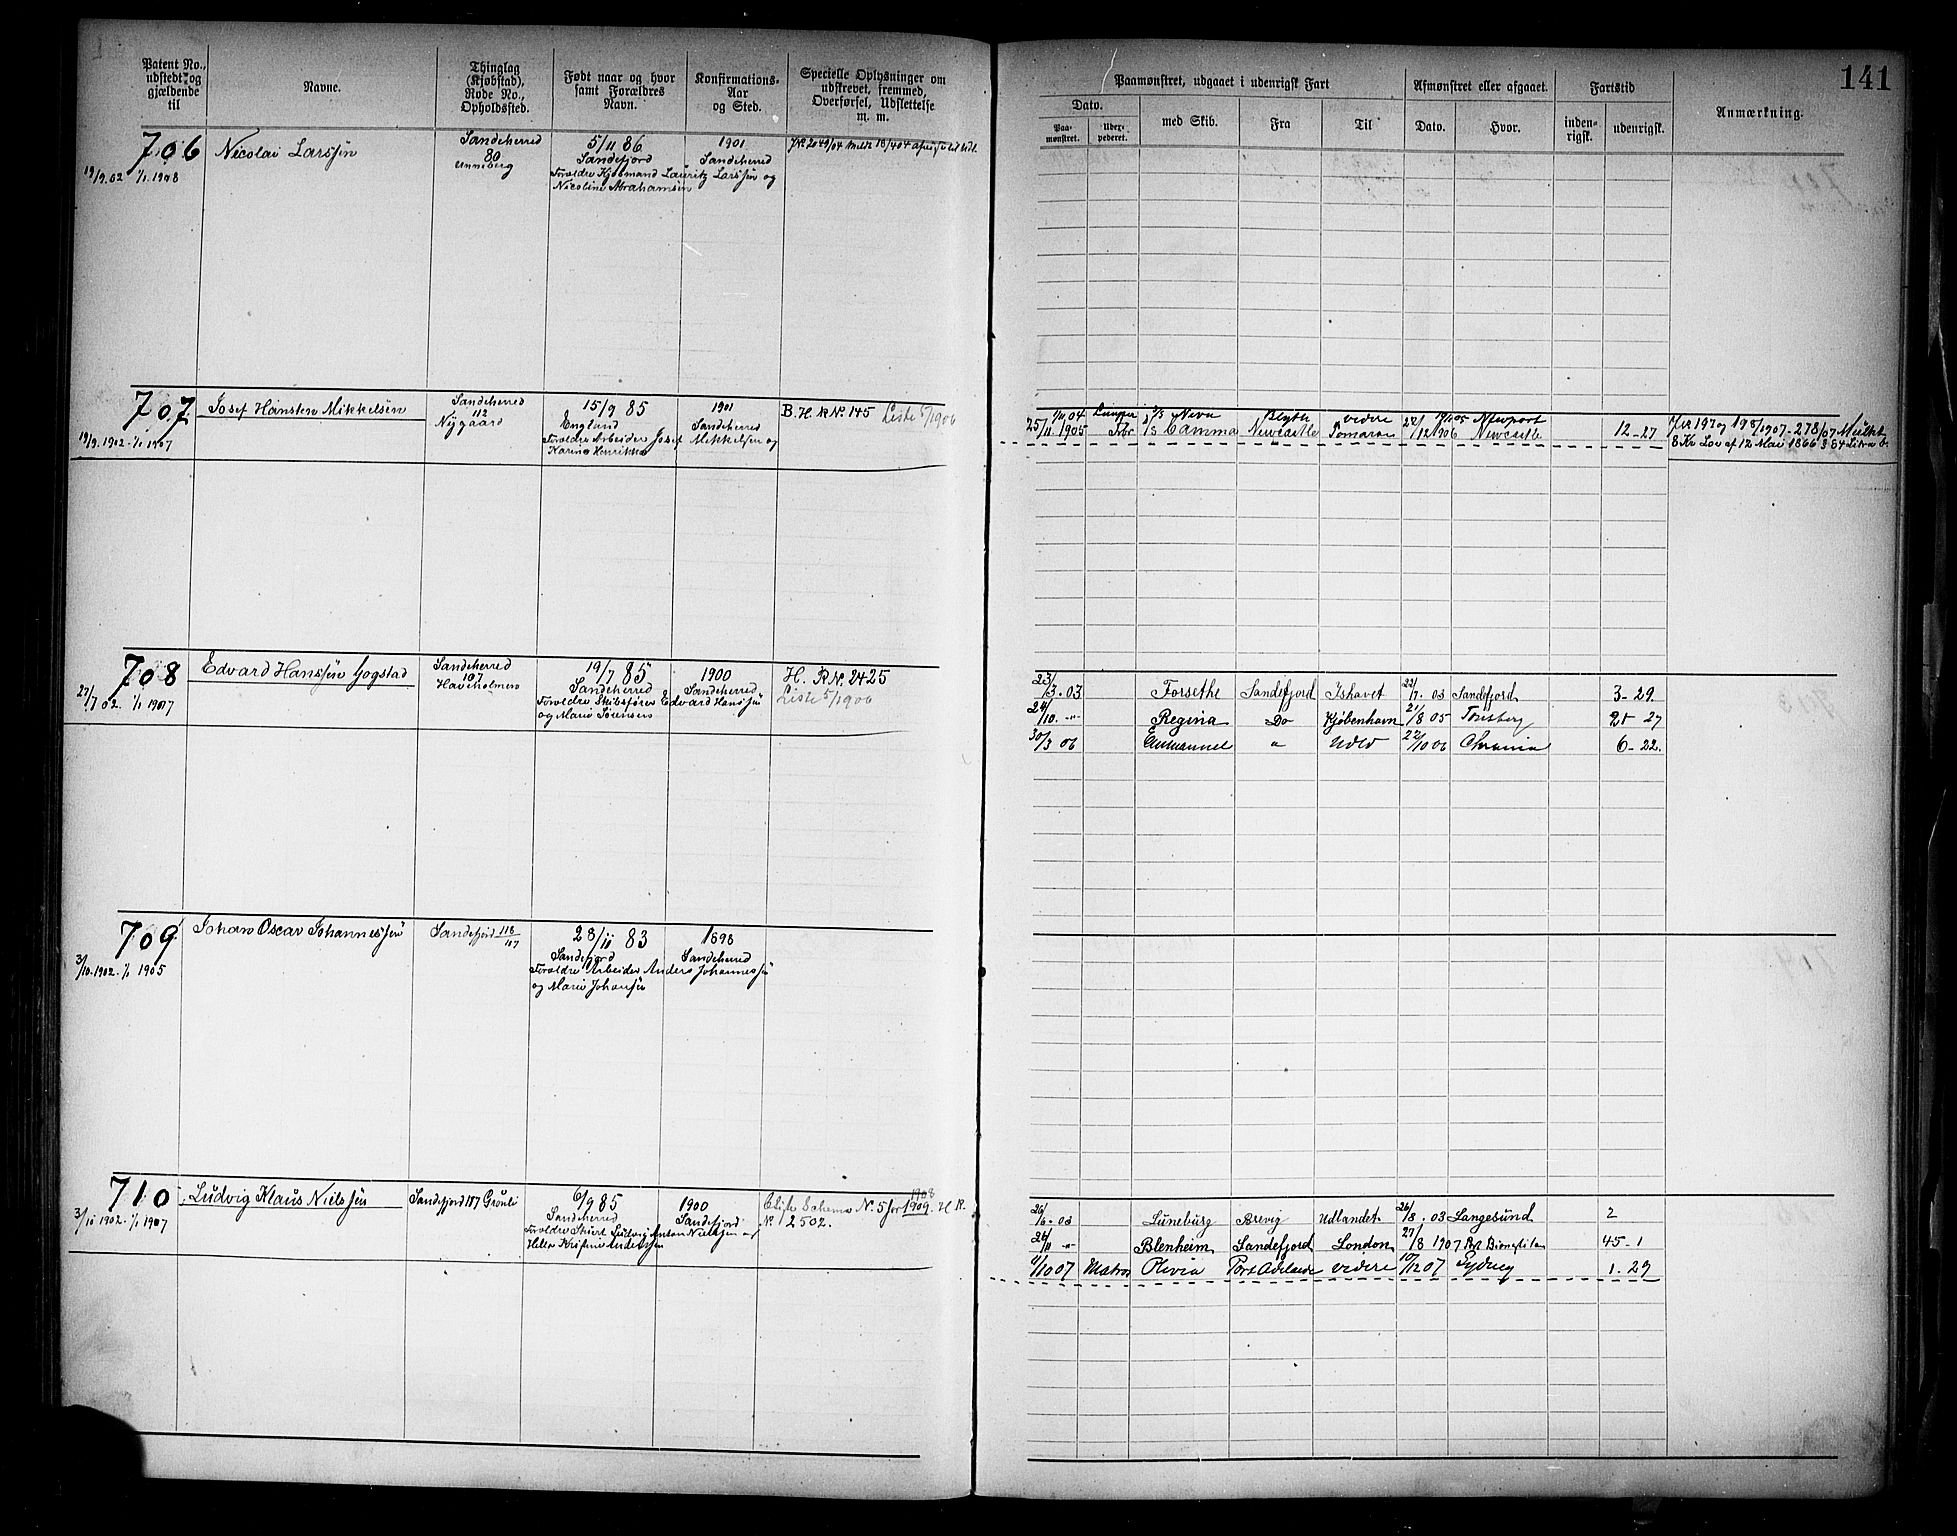 141
Patent No., udstedt og gjældende til
Navne.
Thinglag (Kjøbstad), Rode No., Opholdssted.
Født naar og hvor samt Forældres Navn.
Konfirmations-Aar og Sted.
Specielle Oplysninger om udskrevet, fremmed, Overførsel, Udslettelse m. m.
Paamønstret, udgaaet i udenrigsk Fart
Afmønstret eller afgaaet.
Fartstid
Anmærkning.
Dato.
Paa-mønstret.
med Skib.
Fra
Til
Dato.
Hvor.
inden-rigsk.
udenrigsk.
706
Nicolai Larssen
Sandeherred
80
Unneberg
5/11 86
Sandefjord
1901
Sandeherred
19/9.02 1/1 1908
Forældre Kjøbmand Lauritz Larssen og
Nicoline Abrahamsen
707
Josef Hansten Mikkelsen
Sandeherred
112
Nygaard
15/9 85
England
1901
Sandeherred
B. H. R N. 145 Liste 5/1906
19/9. 1902. 1/1 1907
Forældre Arbeider Josef Mikkelsen og
Karine Henrikke
1/11 04 Neva Blyth videre 19/1 05 Newport
25/11 1905 Camma Newcastle 22/12 1906 Newcastle 12-27
8 Kr Lov af 12 Mai 1866 § 84 Litra b.
708
Edvard Hanssen Gogstad
Sandeherred
107
Haveholmen
19/7 85
Sandeherred
1900
Sandeherred
H. R.N. 2425
Liste 5/1906
27/7 02. 1/1 1907
Forældre Skibsfører Edvard Hanssen
og Marie Sørensen
23/3. 03 Forsethe Sandefjord Ishavet 22/7. 03 Sandefjord 3-29.
24/10. -"- Regina Do Kjøbenhavn 21/8 05 Tønsberg 21 - 27
30/3 06 Emmanuel " Udld 22/10 06 Chrania 6-22.
709
Johan Oscar Johannessen
Sandefjord 118/107
28/11 83
Sandefjord
1898
Sandeherred
3/10. 1902. 1/1 1905
Forældre Arbeider Anders Johannessen
og Marie Johansen
710
Ludvig Klaus Nielssen
Sandefjord 187 Grønli
6/9 85
Sandeherred
1900
Sandefjord
Schema N. 5 for 1909. H R.
1908
N. 2502.
3/10 1902. 1/1 1907
Forældre Stuert Ludvig Anton Nielssen og
Helle Kristine Anderssen
26/6. 03 Lüneburg Brevig Udlandet 26/8. 03 Langesund 2
26/11 -"- Blenheim Sandefjord London 27/8 1907 45-1
11/10 07 Matros Olivia Port Adelaide videre 10/12 07 Sydney 1. 29